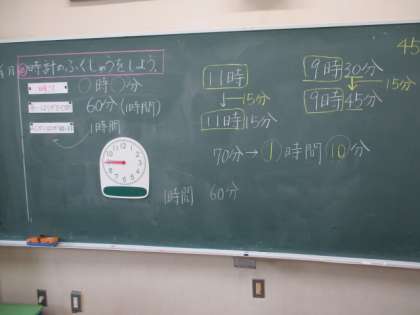 時計のふくしゅうをしよう。
〇時〇分
60分(1時間)
1時間
11時
15分
11時15分
9時30分
15分
9時45分
45
70分→1時間10分
1時間 60分